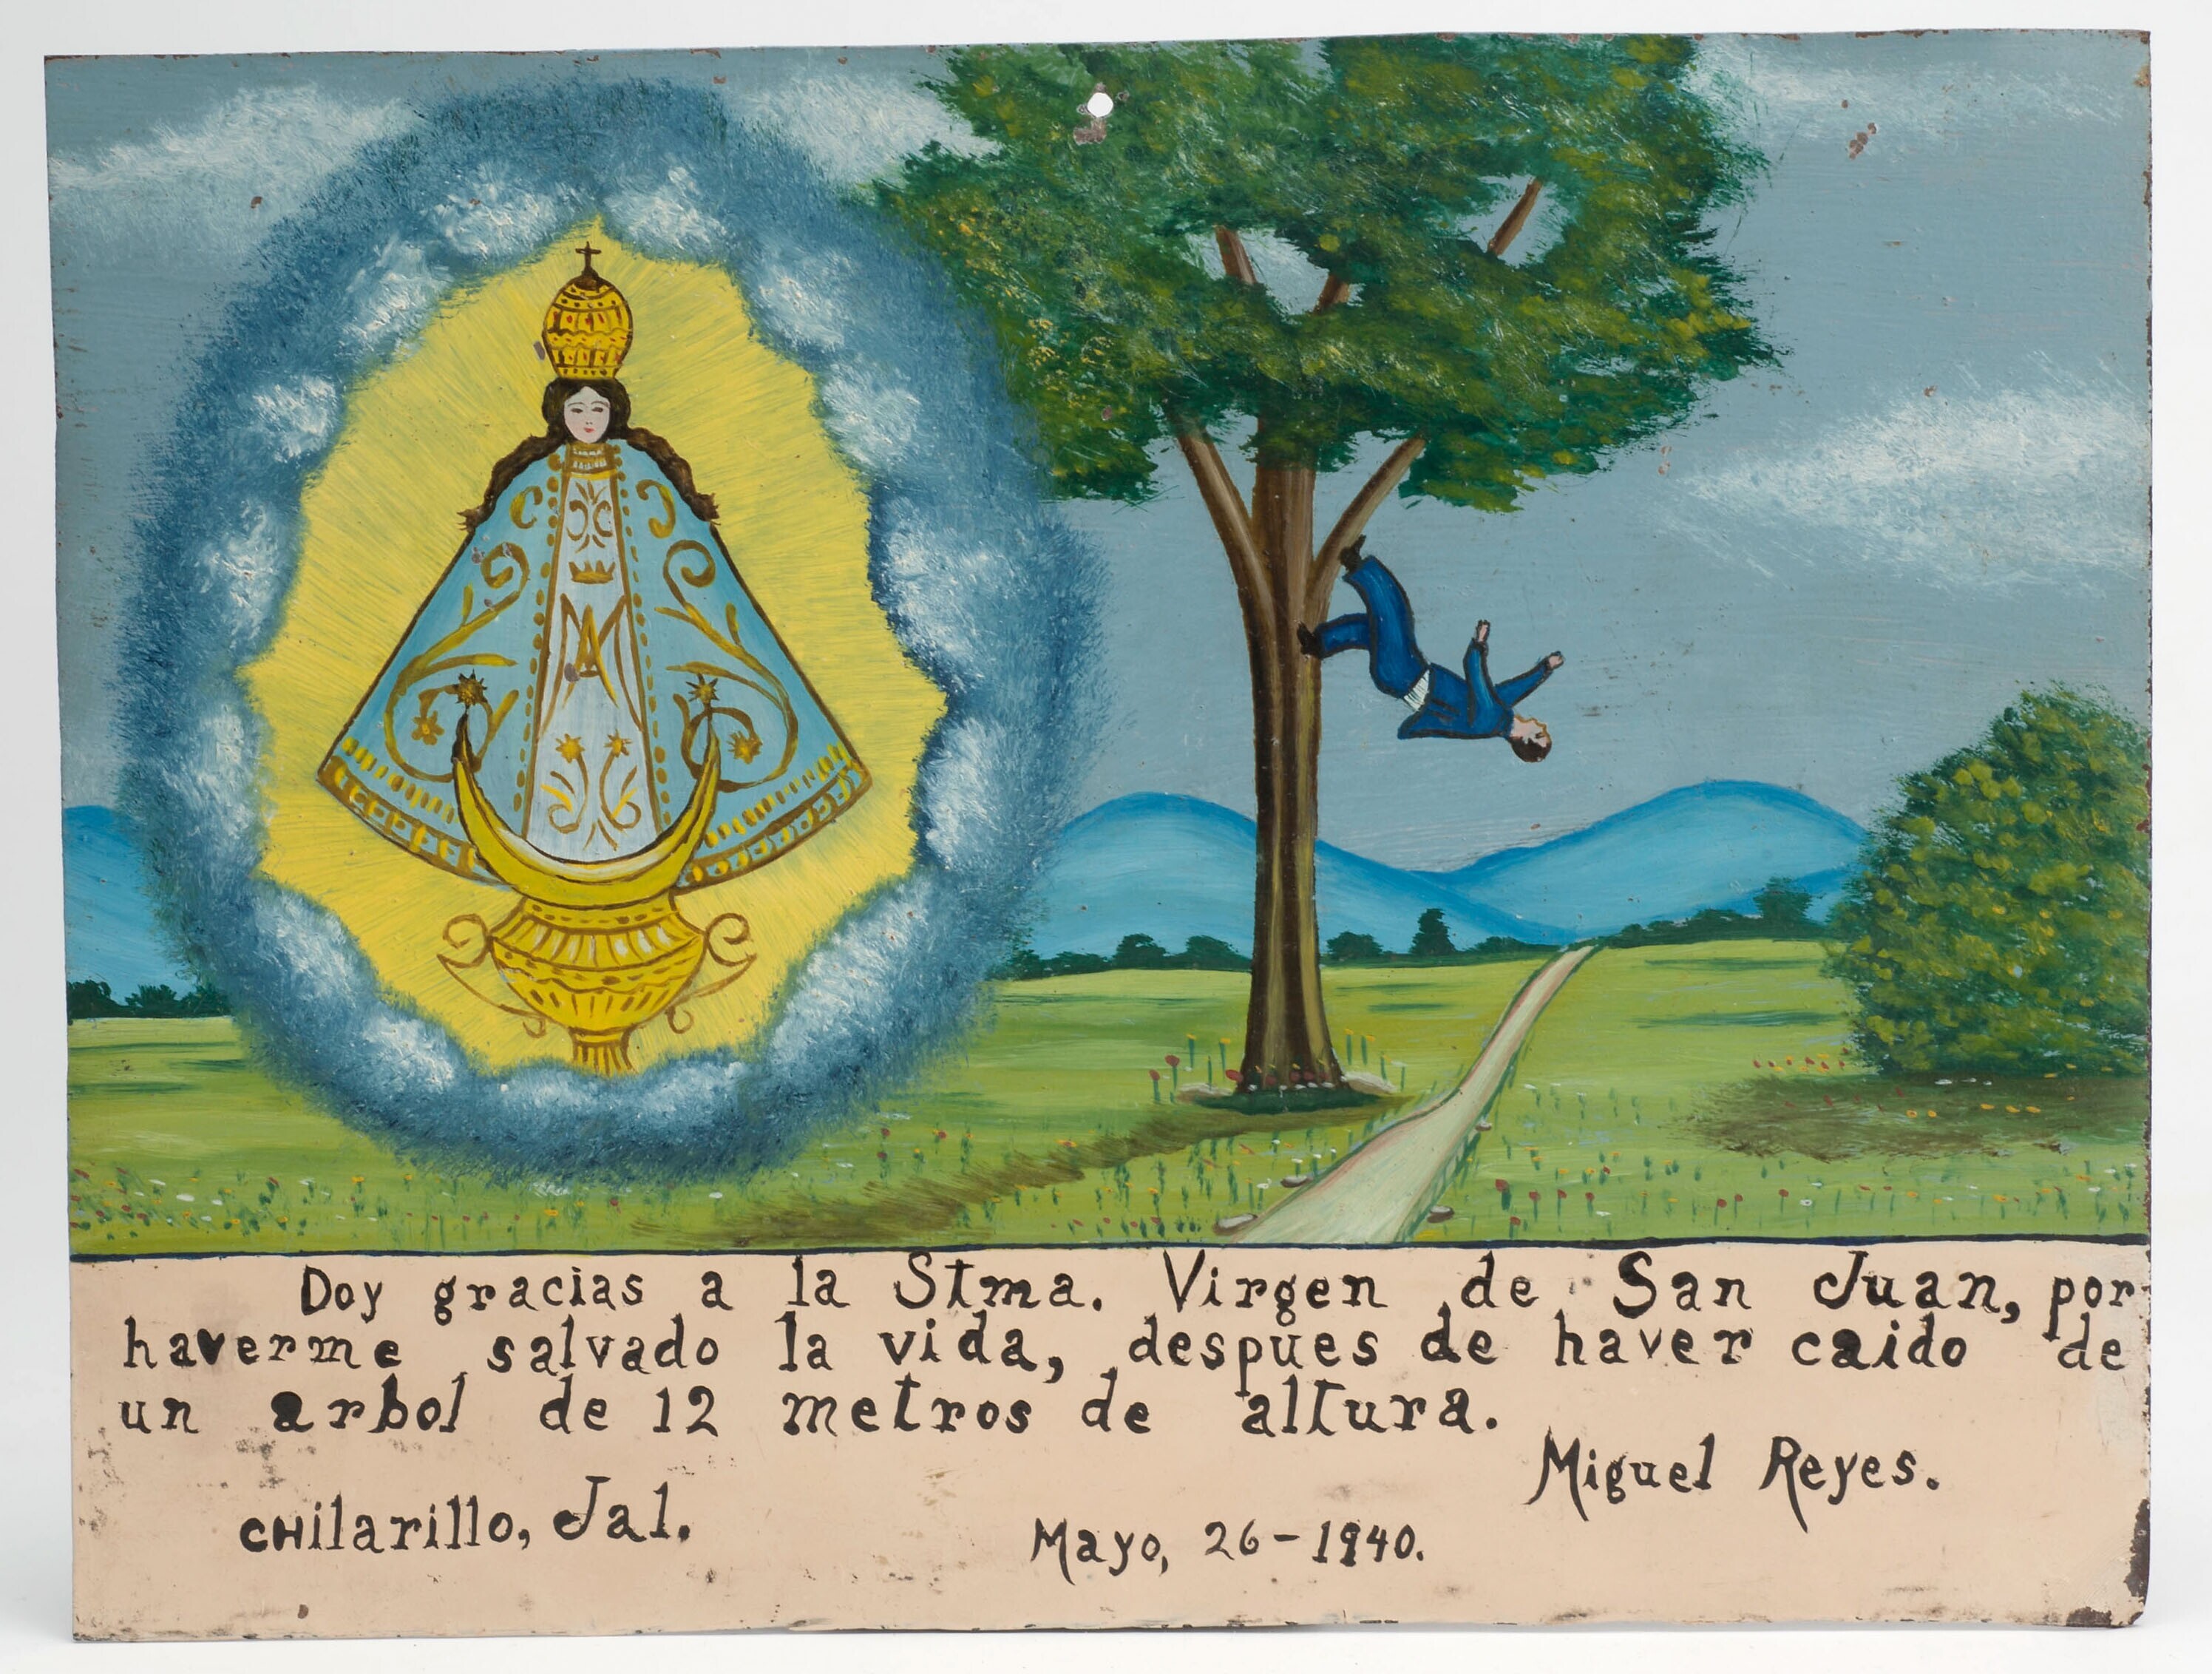 Doy gracias a la Stma. Virgen de San Juan, por
haverme salvado la vida, despues de haver caido de
un arbol de 12 metros de altura.
Miguel Reyes.
CHilarillo, Jal.
Mayo, 26-1940.